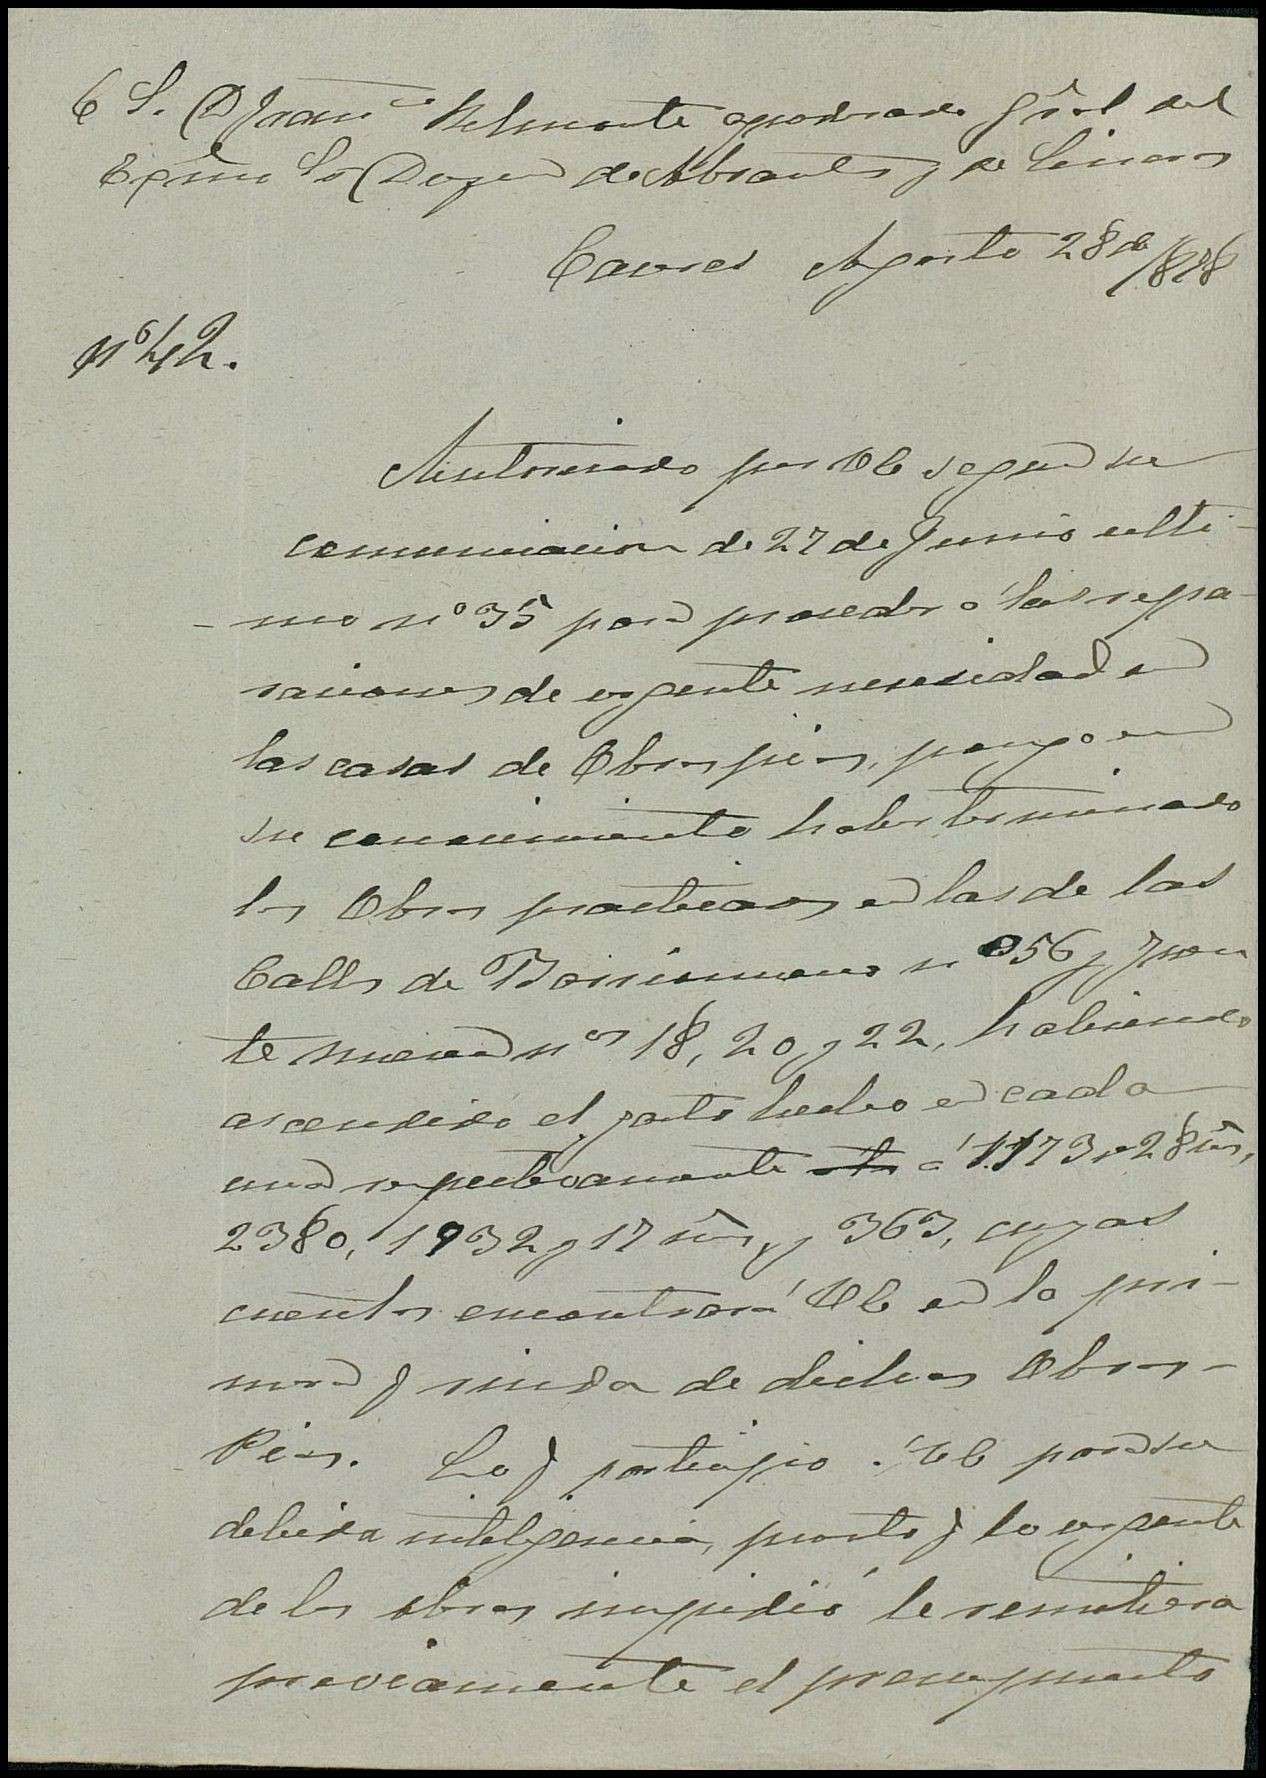 S. D. Fran.co Belmonte apoderado Gral del
Exmo Sr Duque de Abrantes y de Linares
Caceres Agosto 28 de 1878
Nº 42.
Autorizado por VE segun su
comunicacion de 27 de Junio ulti-
-mo nº 35 para proceder á las repa-
raciones de urgente necesidad en
las casas de Obras pias, pongo en
su conocimiento haber terminado
las Obras practicadas en las de las
Calles de Barrionuevo nº 56 y Fuen
te nueva nos 18, 20 y 22, habiendo
ascendido el gasto hecho en cada
una respectivamente á 1.173 y 28
2380, 1932 y 17 y 363, cuyas
cuentas encontrará VE en la pri-
mera q rinda de dichas Obras-
Pias. Lo q participo VE para su
debida inteligencia, puesto q lo urgente
de las obras impidió le remitiera
previamente el presupuesto